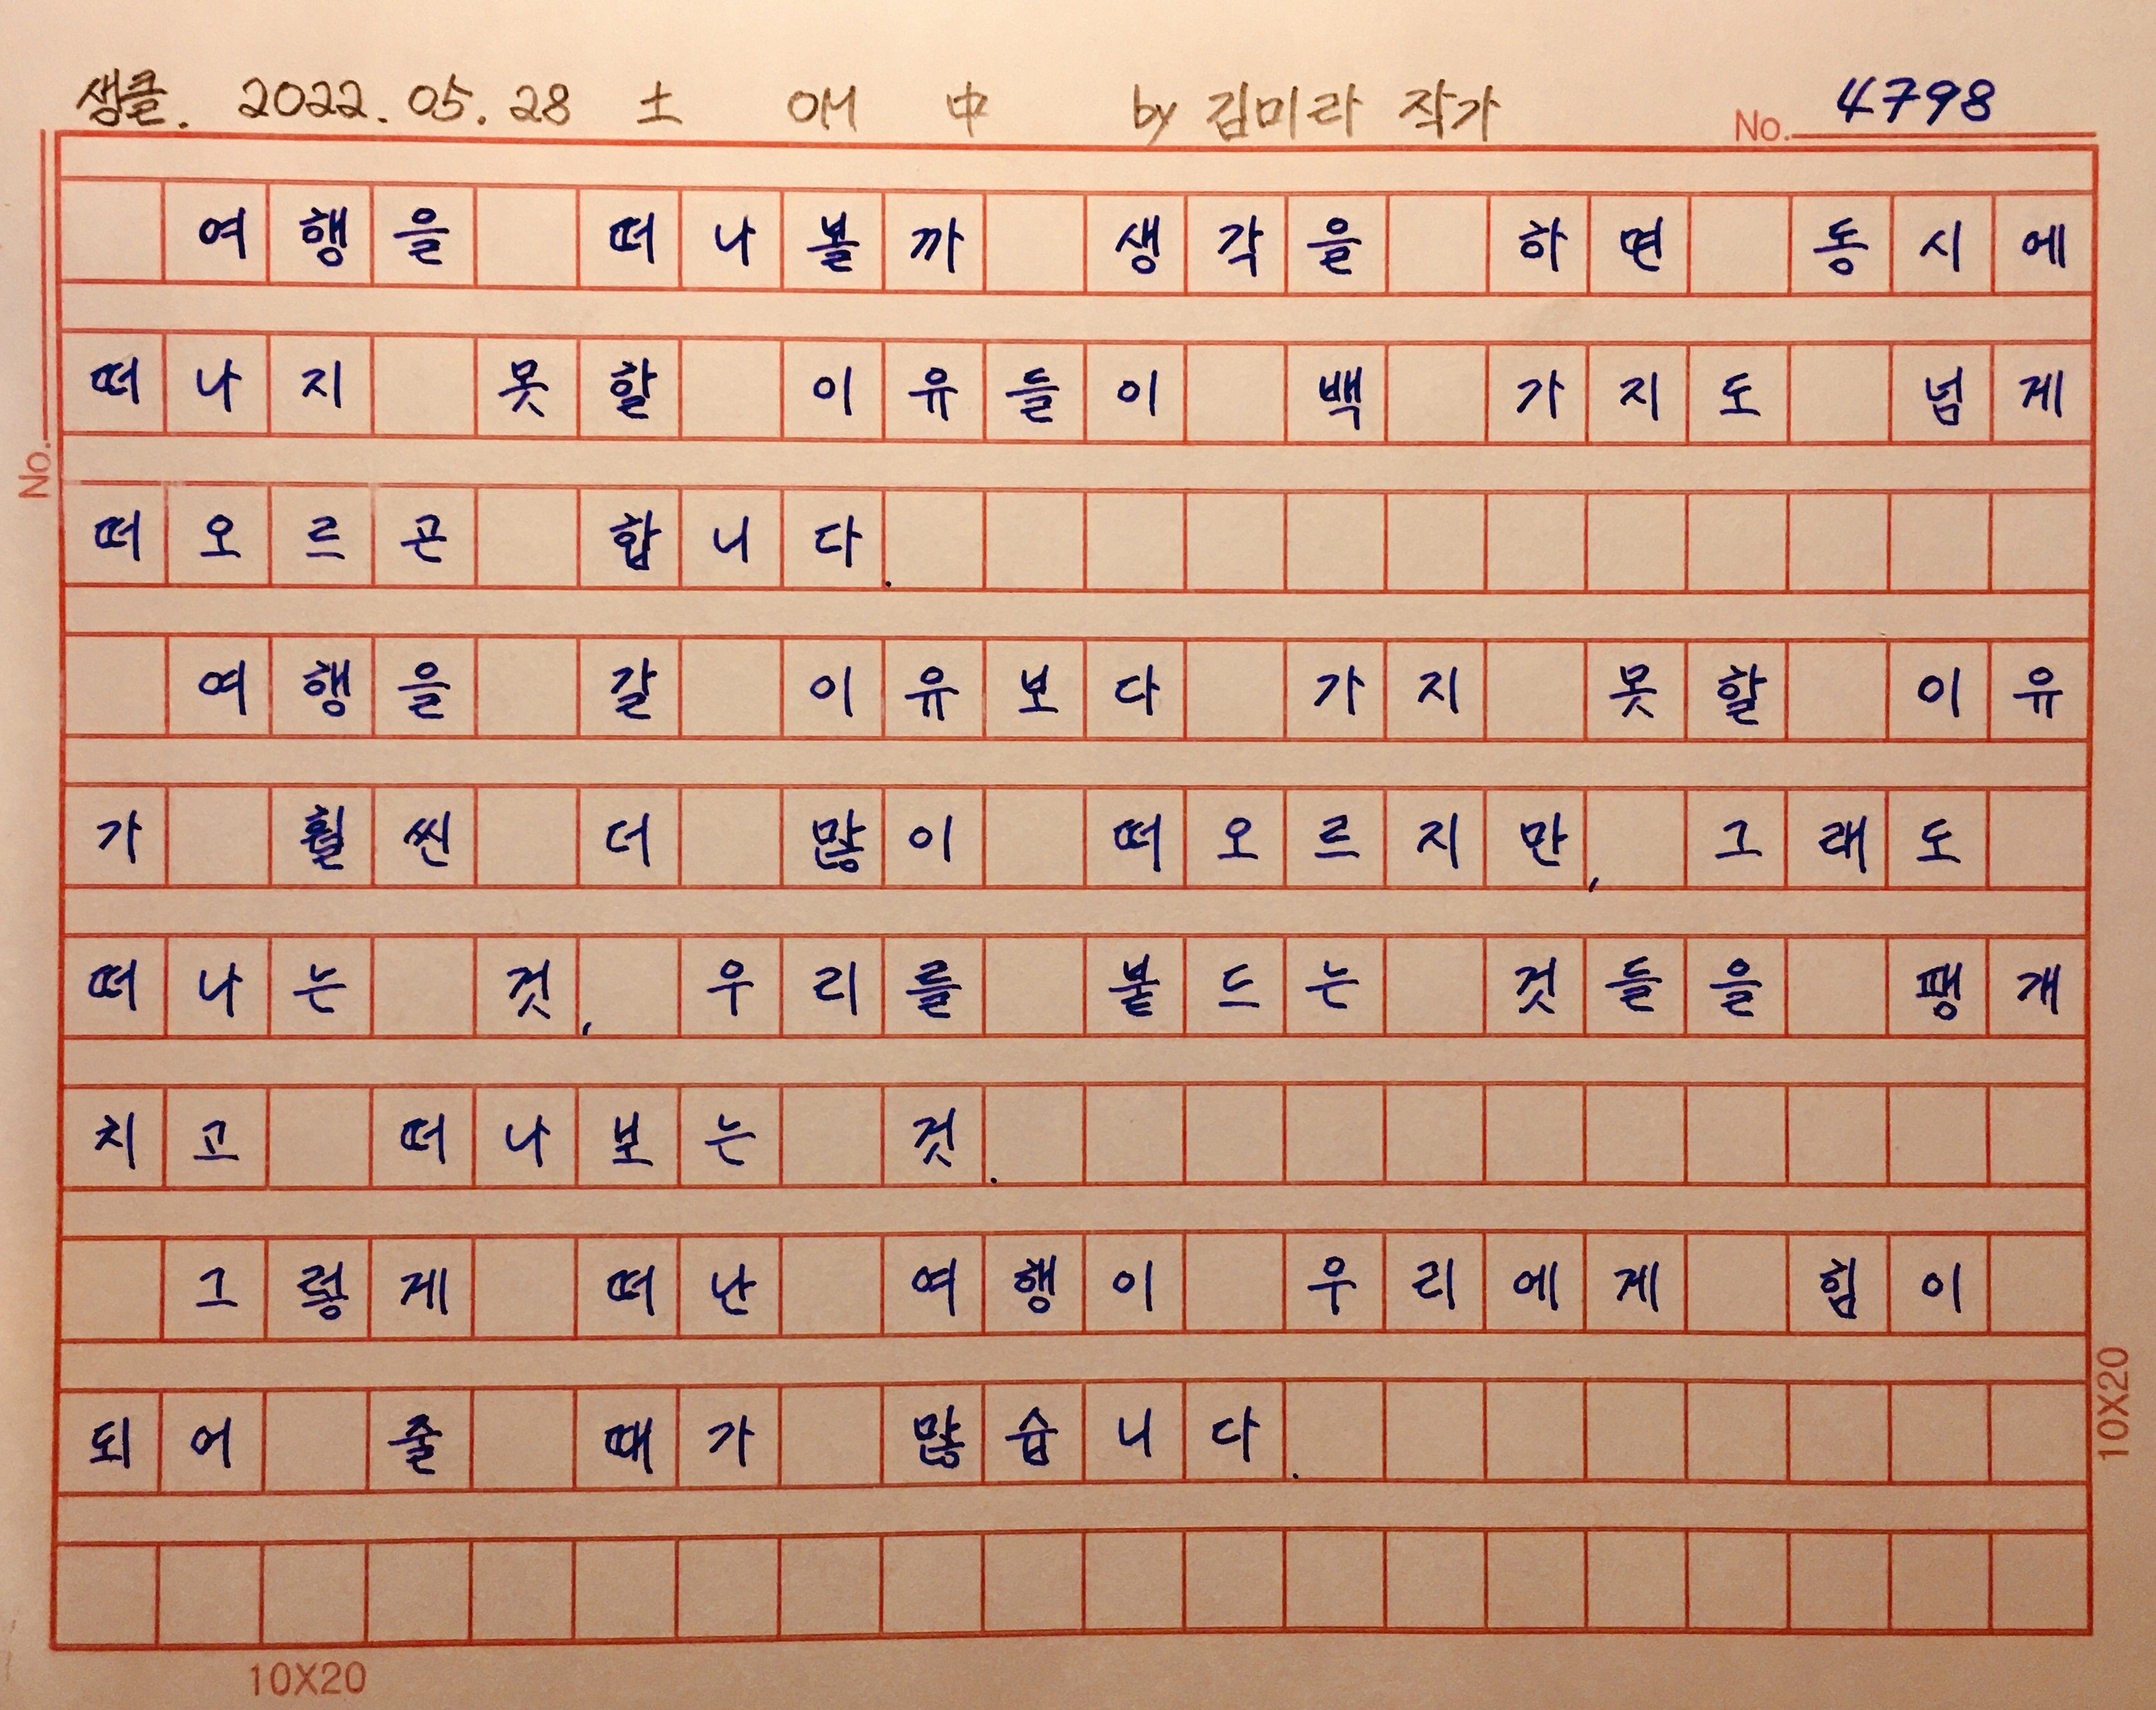 생클. 2022. 05. 28 土 OM 中 by 김미라 작가
No. 4798
여행을 떠나볼까 생각을 하면 동시에
떠나지 못할 이유들이 백 가지도 넘게
떠오르곤 합니다.
여행을 갈 이유보다 가지 못할 이유
가 훨씬 더 많이 떠오르지만, 그래도
떠나는 것, 우리를 붙드는 것들을 팽개
치고 떠나보는 것.
그렇게 떠난 여행이 우리에게 힘이
되어 줄 때가 많습니다.
No.
10X20
10X20